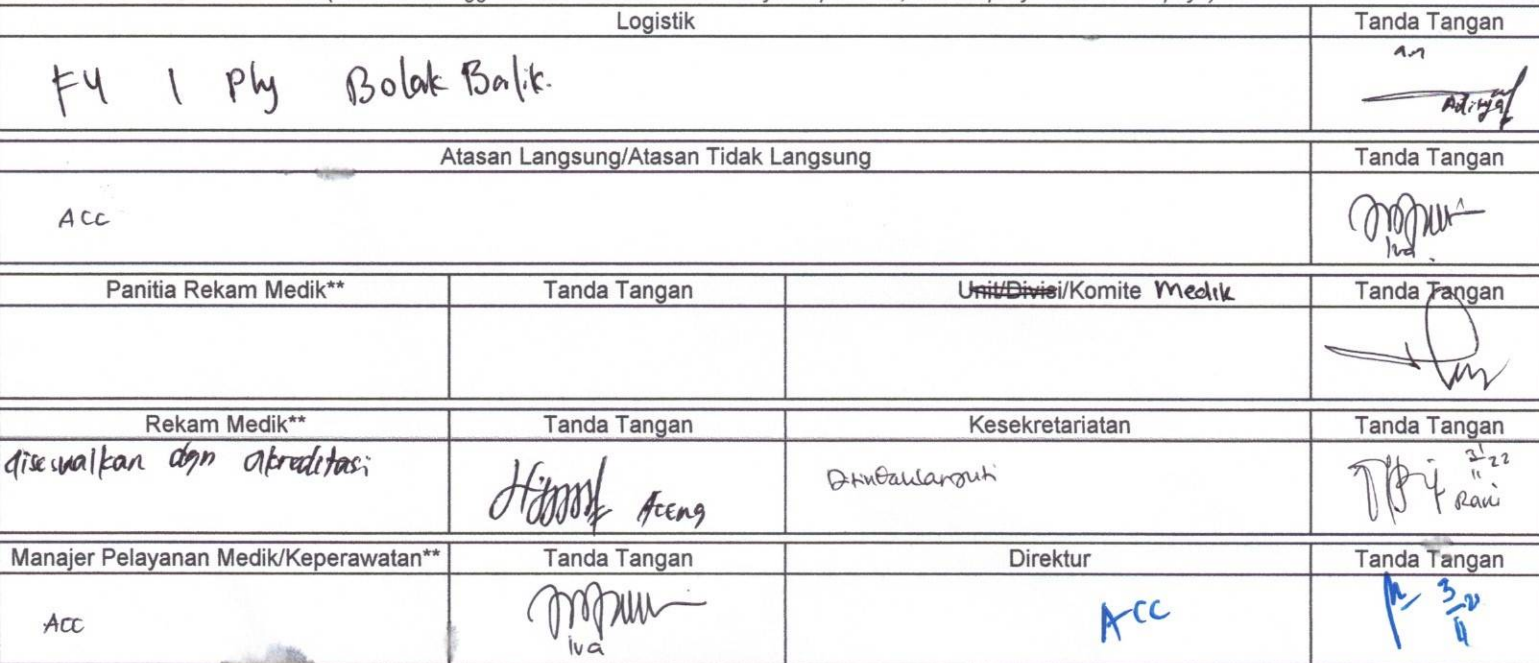 Logistik Tanda Tangan
F4 1 Ply Bolak Balik. an
Aditya
Atasan Langsung/Atasan Tidak Langsung Tanda Tangan
ACC
Iva.
Panitia Rekam Medik** Tanda Tangan Unit/Divisi/Komite Medik Tanda Tangan
Rekam Medik** Tanda Tangan Kesekretariatan Tanda Tangan
disesuaikan dgn akreditasi Ditindaklanjuti 3/11 22
Aceng Rani
Manajer Pelayanan Medik/Keperawatan** Tanda Tangan Direktur Tanda Tangan
ACC Iva ACC 3/11